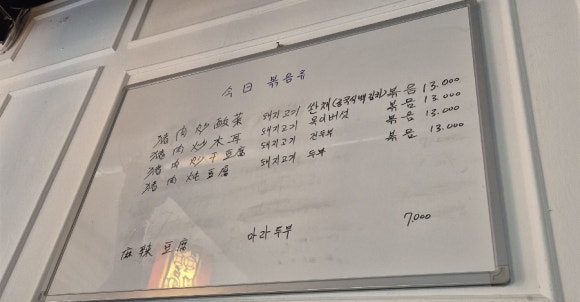 今日 볶음류
猪肉炒酸菜 돼지고기 쏸채(중국식백김치) 볶음 13.000
猪肉炒木耳 돼지고기 목이버섯 볶음 13.000
猪肉炒干豆腐 돼지고기 건두부 볶음 13.000
猪肉炖豆腐 돼지고기 두부 볶음 13.000
麻辣豆腐 마라두부 7.000